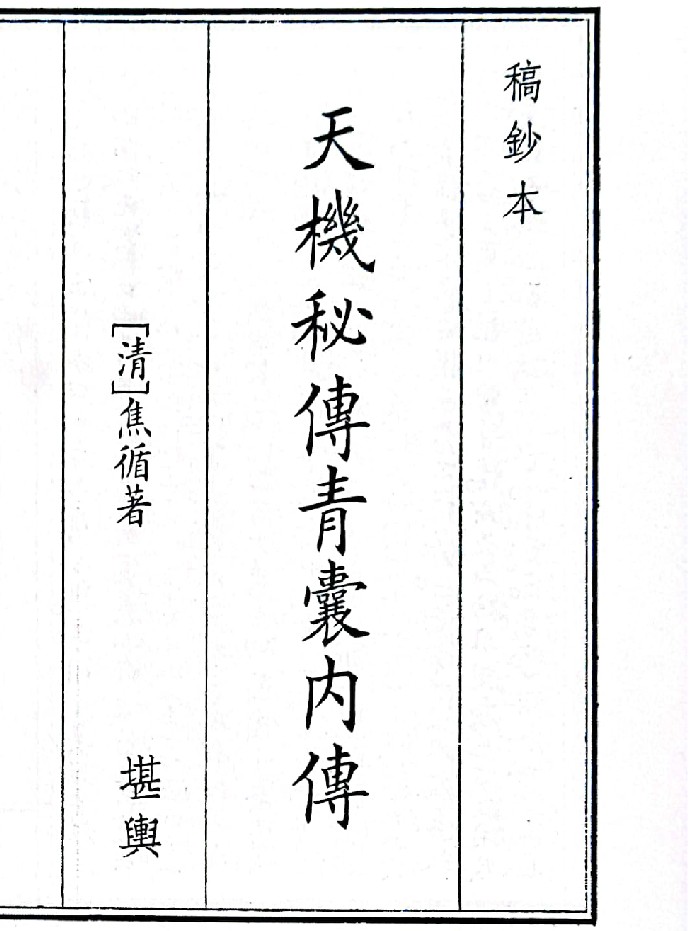 稿鈔本
天機秘傳青囊内傳
[清]焦循著
堪輿